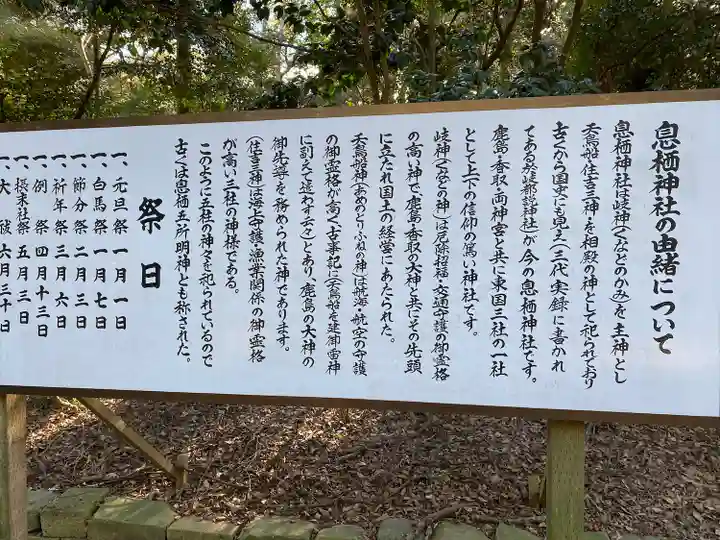 息栖神社の由緒について
息栖神社は岐神(くなどのかみ)を主神とし
天鳥船・住吉三神・を相殿の神として祀られており
古くから国史にも見え(三代実録に書かれ
てある於岐都説神社)が今の息栖神社です。
鹿島・香取・両神宮と共に東国三社の一社
として上下の信仰の篤い神社です。
岐神(くなどの神)は厄除招福・交通守護の御霊格
の高い神で鹿島・香取の大神と共にその先頭
に立たれ国土の経営にあたられた。
天鳥船神(あめのとりふねの神)は航海・航空の守護
の御霊格が高く(古事記に天鳥船を建御雷神
に副えて遣わす云々)とあり、鹿島の大神の
御先導を務められた神であります。
(住吉三神)は海上守護・漁業関係の御霊格
が高い三社の神様である。
このように五社の神々を祀られているので
古くは息栖五所明神とも称された。
祭日
一、元旦祭 一月一日
一、白馬祭 一月七日
一、節分祭 二月三日
一、祈年祭 三月六日
一、例祭 四月十三日
一、摂末社祭 五月三日
一、大祓 六月三十日